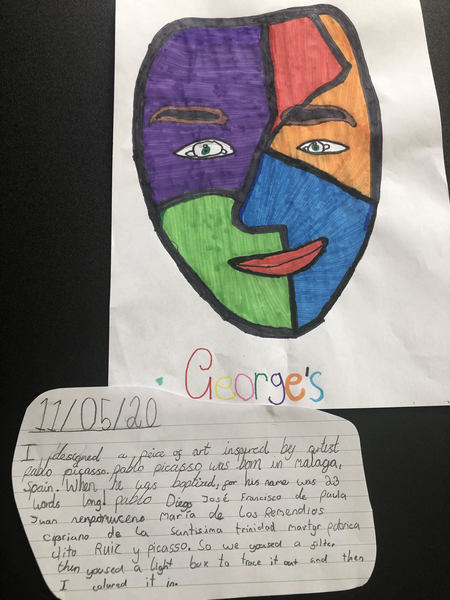 George's
11/05/20
I designed a peice of art inspired by artist
pablo picasso. pablo picasso was born in malaga,
Spain. When he was baptized, for his name was 23
words long! pablo Diego José Francisco de paula
Juan nenpomuceno María de Los Remendios
Cipriano de la santisima trinidad martyr patrica
Clito RUIZ y picasso. So we yoused a filter
then yoused a light box to trace it out and then
I coloured it in.